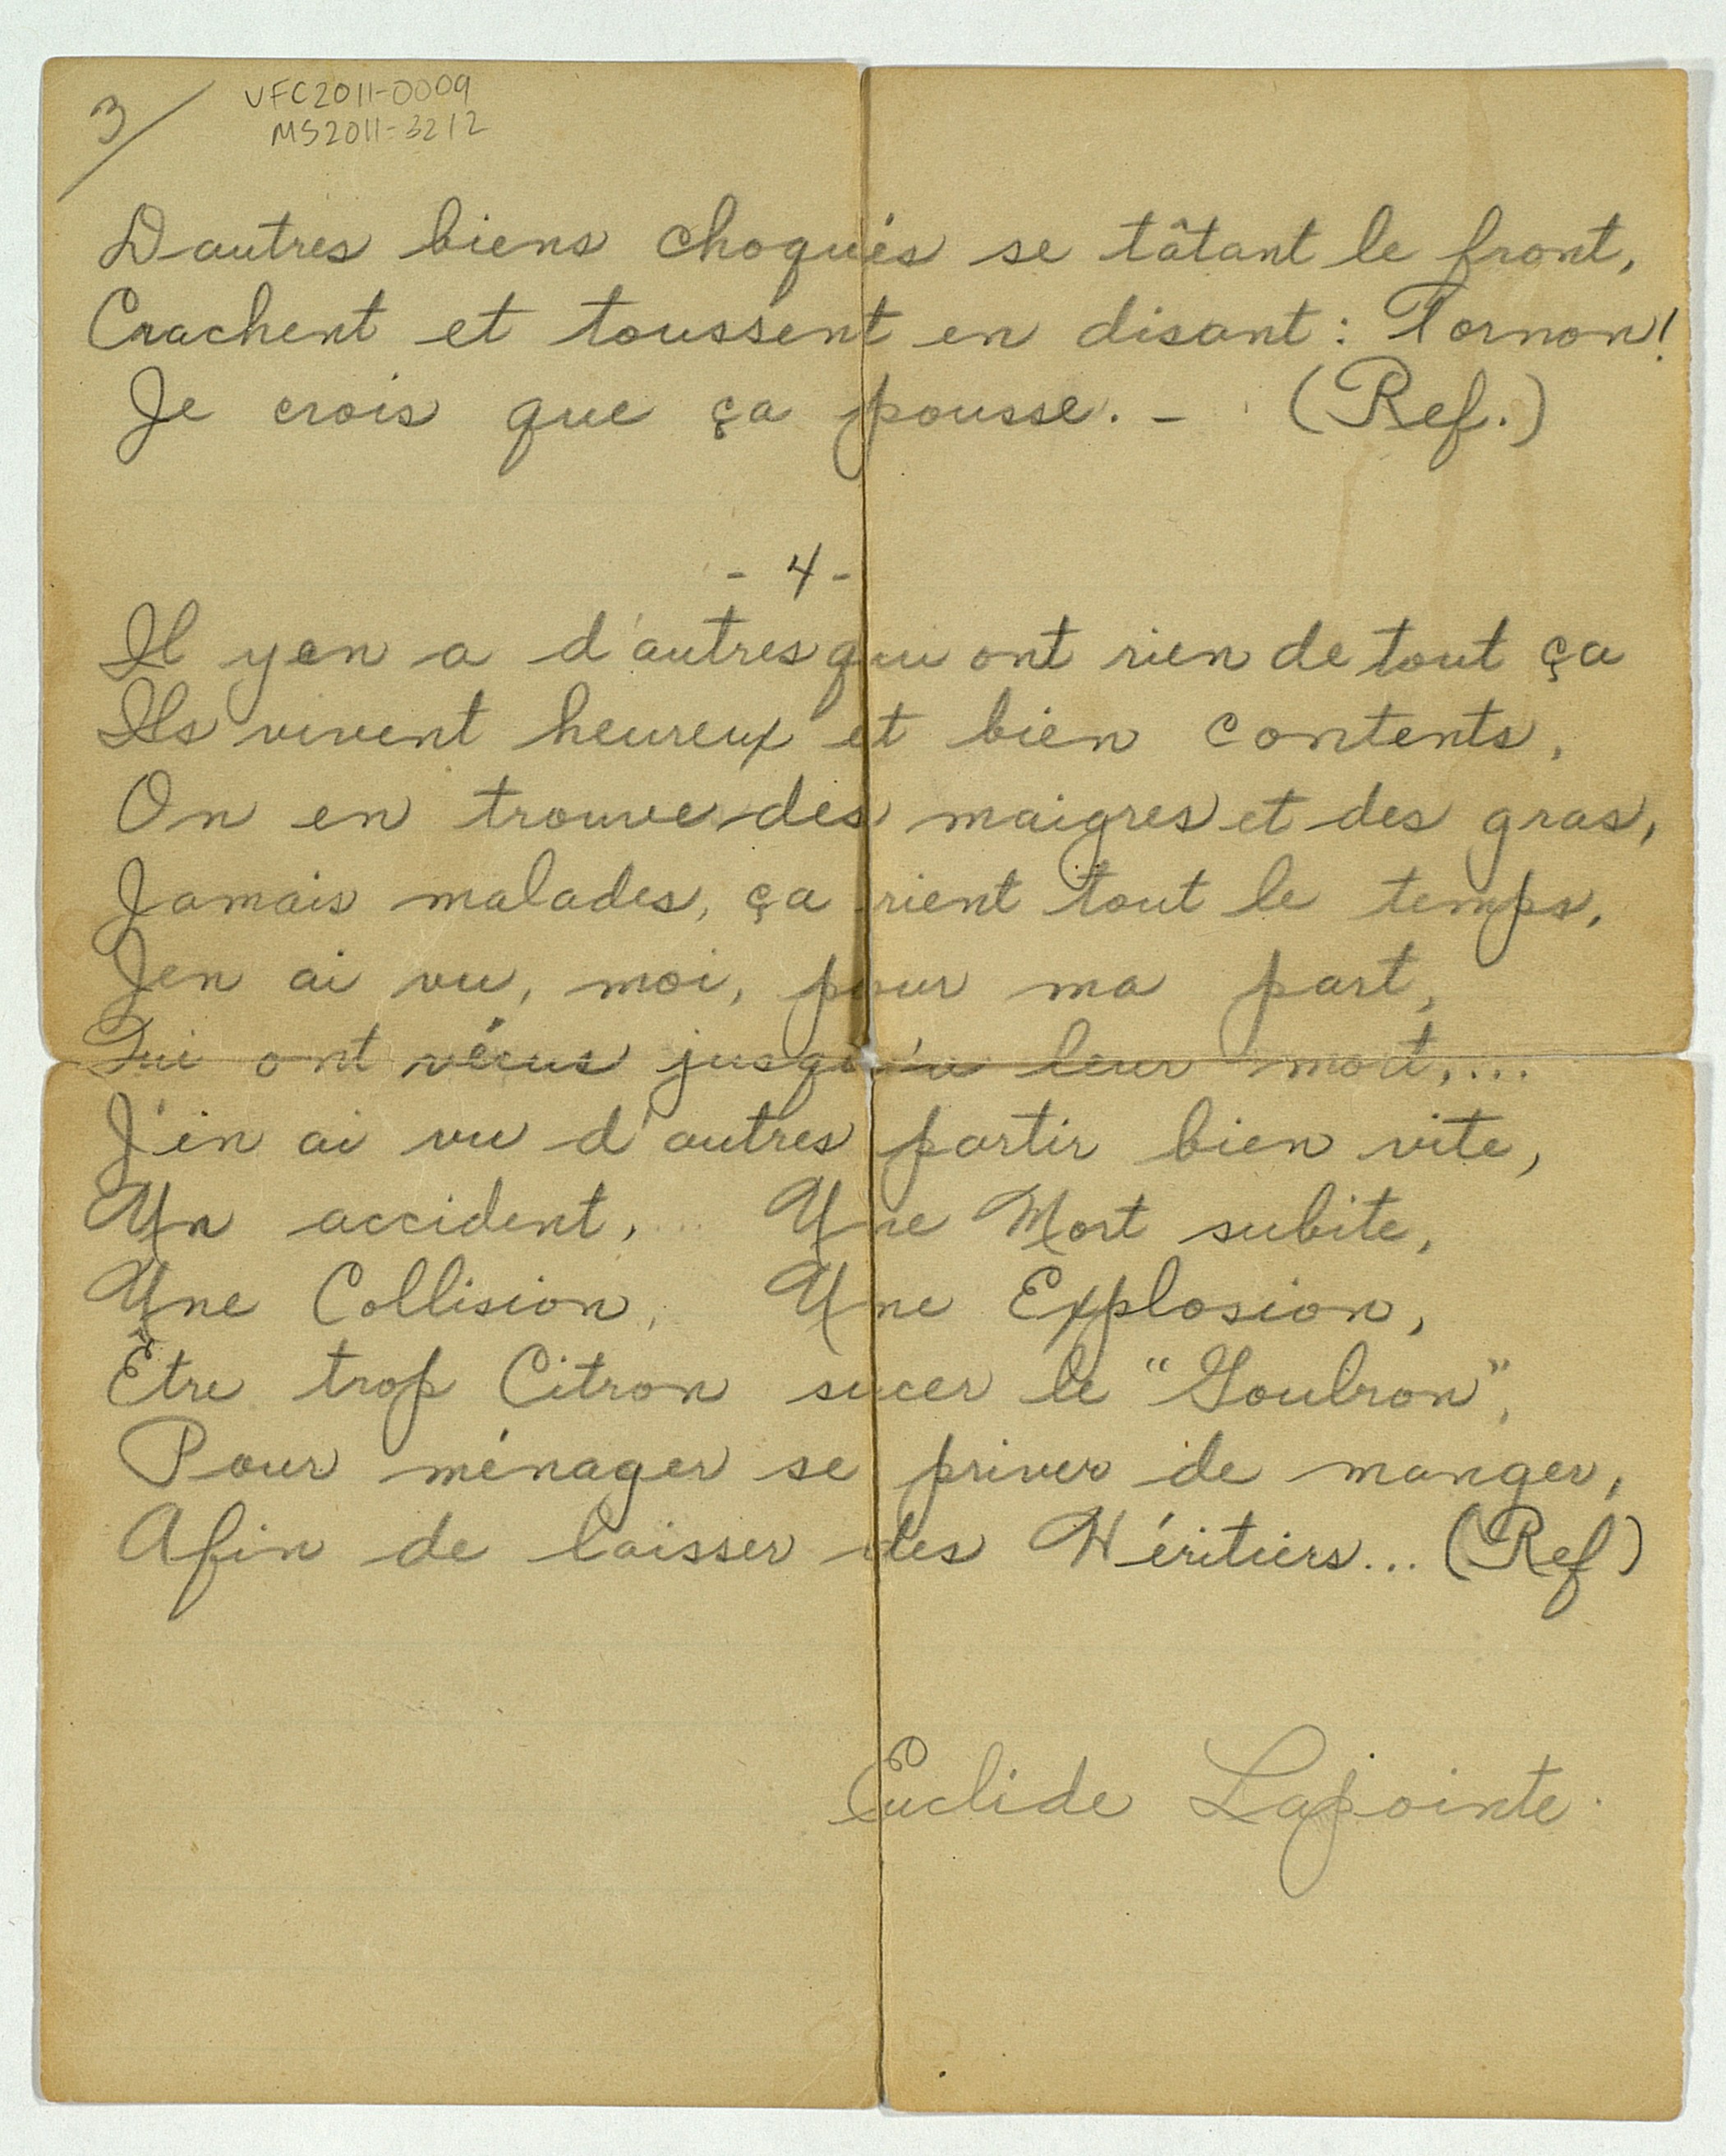 3/
VFC2011-0009
MS2011-3212
Dautres biens choqués se tâtant le front,
Crachent et toussent en disant : Tornon!
Je crois que ça pousse. - (Ref.)
- 4 -
Il yen a d'autres qui ont rien de tout ça
Ils vivent heureux et bien contents,
On en trouve des maigres et des gras,
Jamais malades, ça rient tout le temps,
Jen ai vu, moi, pour ma part,
Qui ont vécus jusqu'à leur mort,...
J'en ai vu d'autres partir bien vite,
Un accident, ... Une Mort subite,
Une Collision, Une Explosion,
Être trop Citron sucer le "Goulron",
Pour ménager se priver de manger,
Afin de laisser des Héritiers... (Ref)
Euclide Lapointe.